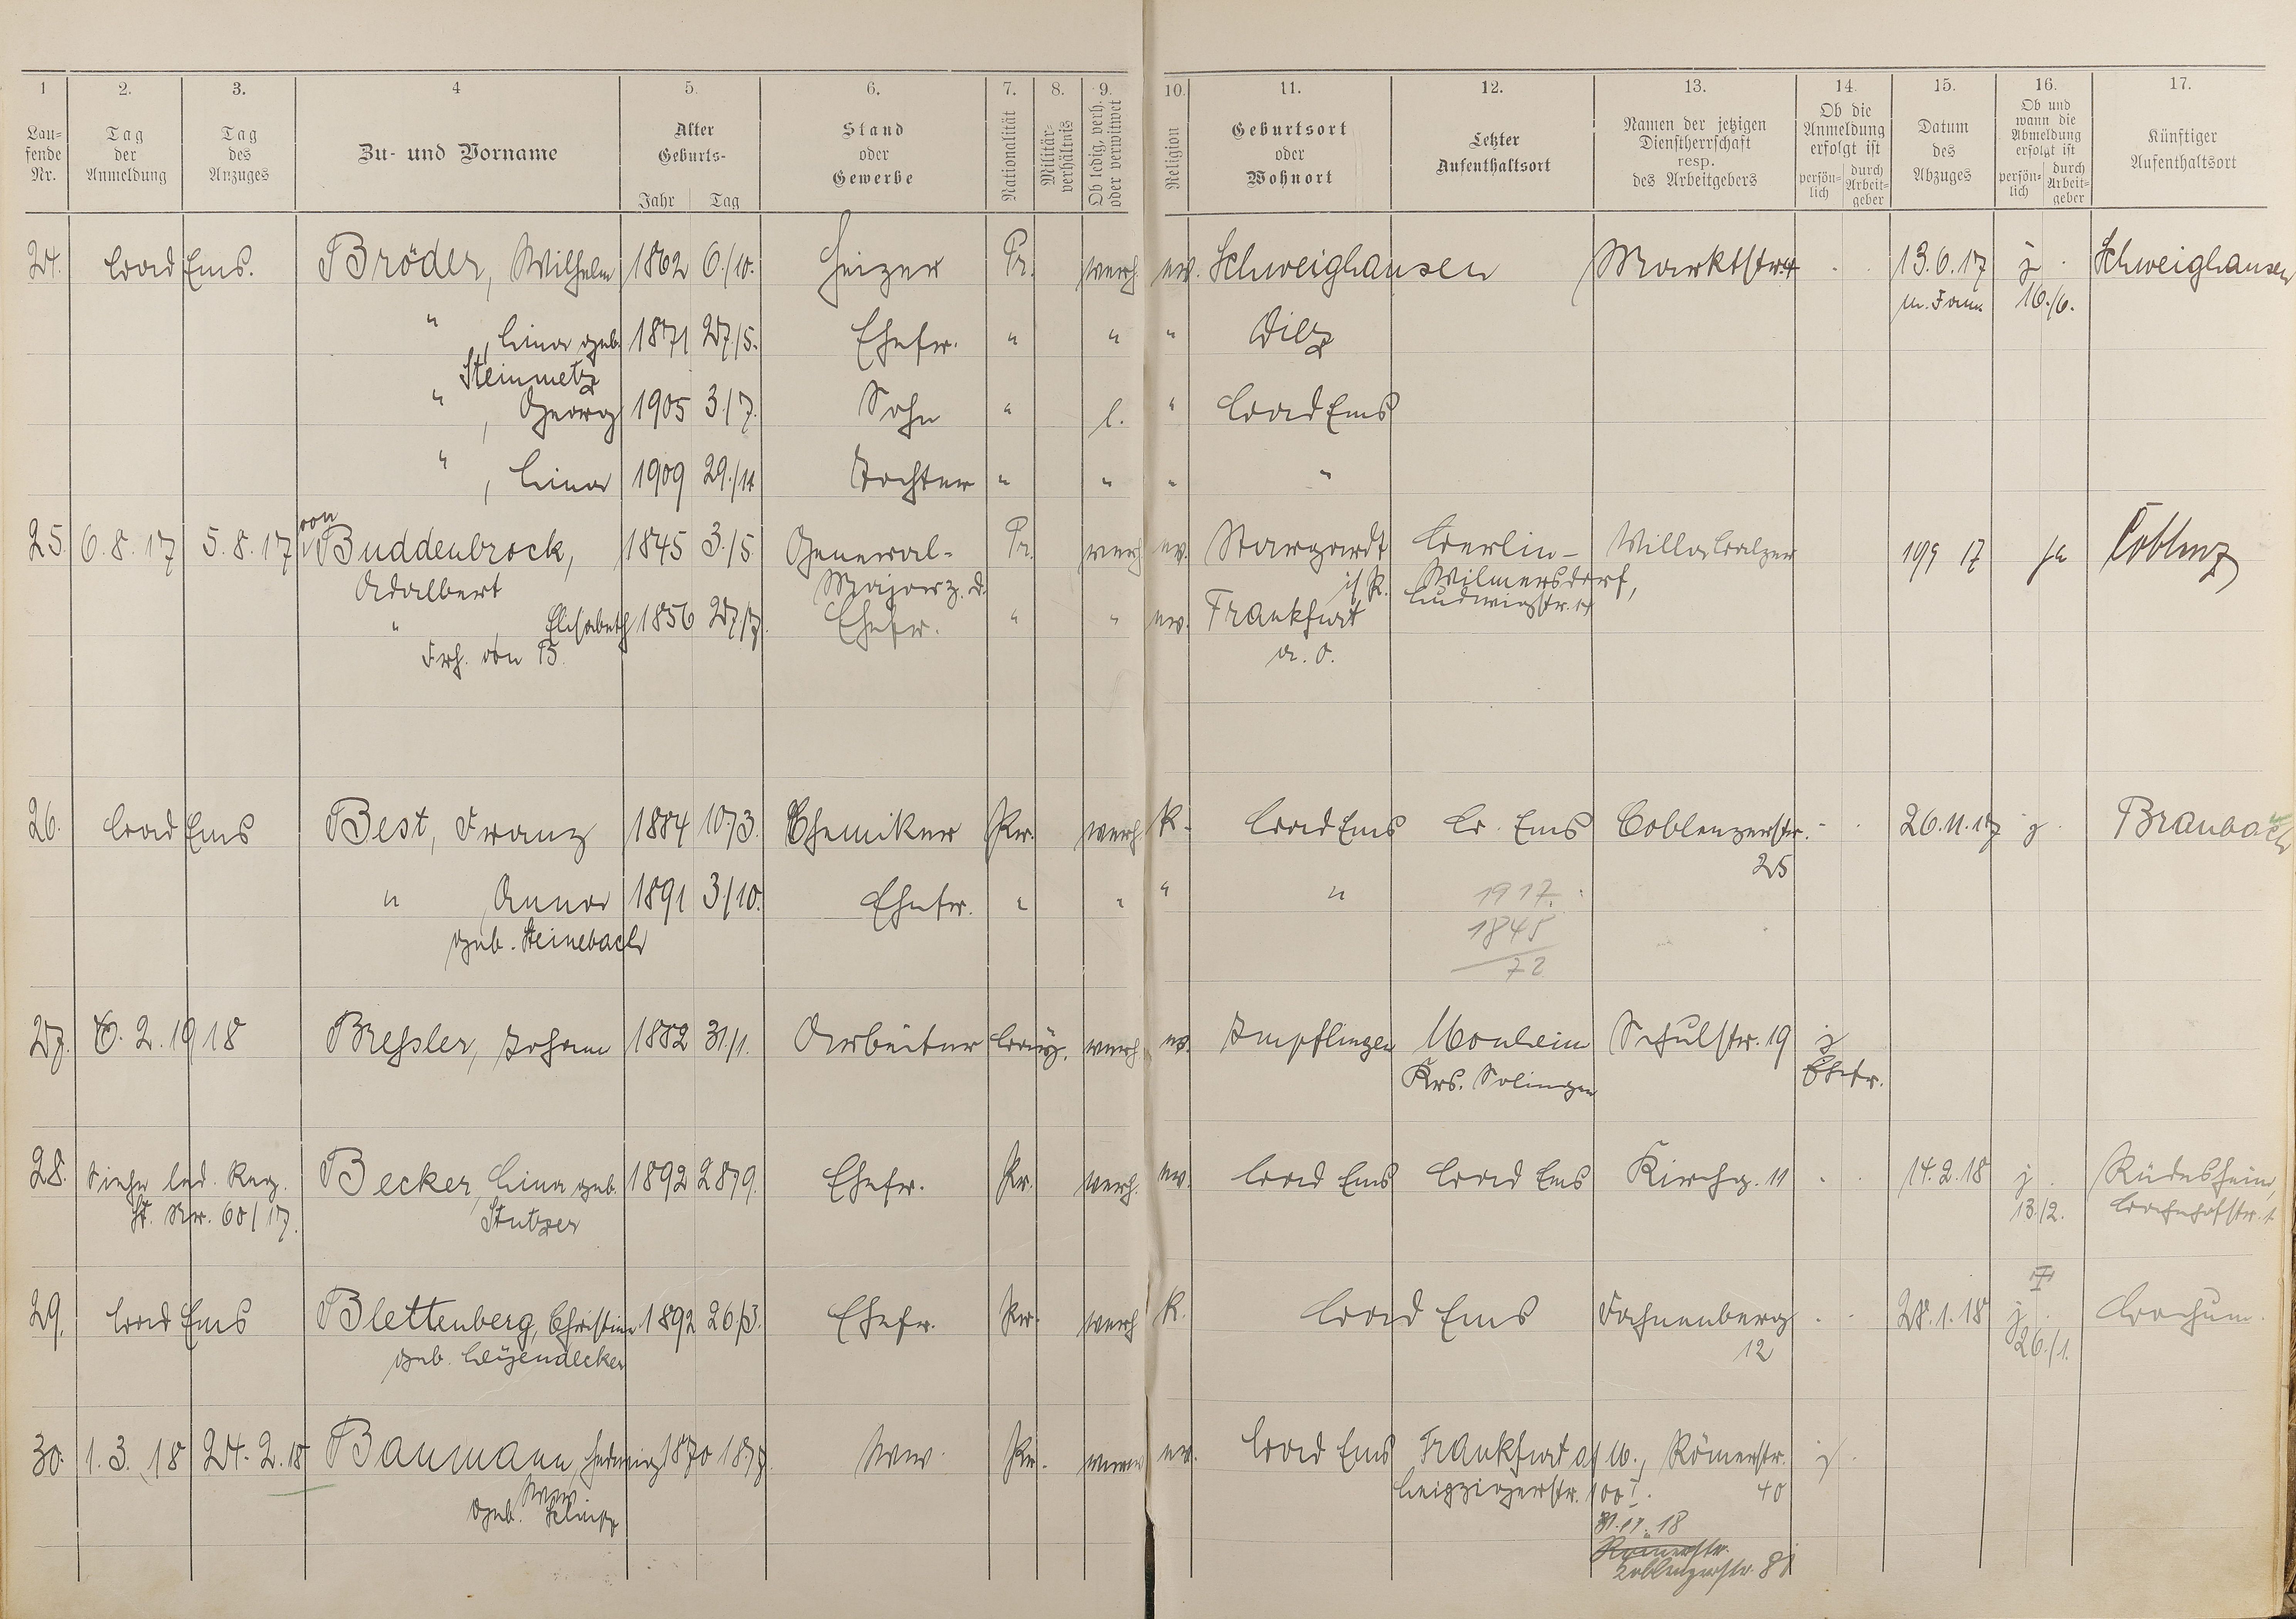 1 2. 3. 4 5. 6. 7. 8. 9. 10. 11. 12. 13. 14. 15. 16. 17.
Lau-
fende
Nr.
Tag
der
Anmeldung
Tag
des
Anzuges
Zu- und Vorname
Alter
Geburts-
Jahr Tag
Stand
oder
Gewerbe
Nationalität
Militär-
verhältnis
Ob ledig, verh.
oder verwitwet
Religion
Geburtsort
oder
Wohnort
Letzter
Aufenthaltsort
Namen der jetzigen
Dienstherrschaft
resp.
des Arbeitgebers
Ob die
Anmeldung
erfolgt ist
persön-
lich
durch
Arbeit-
geber
Datum
des
Abzuges
Ob und
wann die
Abmeldung
erfolgt ist
persön-
lich
durch
Arbeit-
geber
Künftiger
Aufenthaltsort
24. Bad Ems. Bröder, Wilhelm 1862 6./10. Heizer Pr. verh. ev. Schweighausen Marktstr. 4 13.6.17 j. Schweighausen
m. Fam 16./6.
" , Lina geb. 1871 27./5. Ehefr. " " " Diez
Steinmetz
" , Georg 1905 3./7. Sohn " l. " Bad Ems
" , Lina 1909 29./11 Tochter " " " "
25. 6.8.17 5.8.17 von Buddenbrock, 1845 3./5 General- Pr. verh ev. Stargardt Berlin- Villa Balzer 19 9 17 ja Coblenz
Adalbert Major z. D. i/P. Wilmersdorf,
" Elisabeth 1856 27./7. Ehefr. " " ev. Frankfurt Ludwigstr.
Frh. von B. a. O.
26. Bad Ems Best, Franz 1884 10./3. Chemiker Pr. verh. k. Bad Ems B. Ems Coblenzerstr. 26.11.17 j. Braubach
25
" , Anna 1891 3./10. Ehefr. " " " " 1917.
geb. Steinebach 1845
72
27. 6.2.1918 Breßler, Johann 1882 31./1. Arbeiter Bay. verh. ev. Impflingen Monheim Schulstr. 19 j
Krs. Solingen Ehefr.
28. siehe led. Reg. Becker, Lina geb. 1892 28./9. Ehefr. Pr. verh. ev. Bad Ems Bad Ems Kirchg. 11 14.2.18 j. Rüdesheim,
St. Nr. 60/17. Stutzer 13./2. Bahnhofstr. 1
29. Bad Ems Blettenberg, Christine 1892 26./3. Ehefr. Pr. verh k. Bad Ems Fachnenberg 28.1.18 j. Bochum.
geb. Leyendecker 12 26./1.
30. 1.3.18 24.2.18 Baumann, Hedwig 1870 18./7. Ww. Pr. verw ev. Bad Ems Frankfurt a/M., Römerstr. j.
Ww. Leipzigerstr. 100 I. 40
geb.
18
Römerstr.
Coblenzerstr. 81